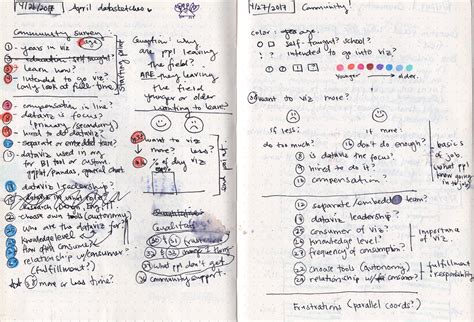 4/26/2017 April datasketches
Community survey:
1 - years in viz age
2 - education self taught?
3 - learn how?
4 - intended to go viz?
(only look at full time)
starting point
9 - compensation in line?
8 - dataviz is focus?
(primary/secondary)
10 - hired to do dataviz?
12 - separate or embedded team?
13 dataviz used in org
for gui built or custom
ggplot/pandas, special chart
dataviz leadership?
22 choose own tools (autonomy)
25 who are the dataviz for?
26 knowledge level?
27 how often consume?
28 relationship w/ consumer?
(fulfillment?)
38 more or less time?
Question: why
are ppl leaving
the field?
ARE they leaving
the field
younger or older
wanting to leave?
want to viz
more? less?
% of day viz
end point
Qualitative
30 & 31 frustrated
what ppl don't get
community support.
4/27/2017 Community
color: yes age.
self-taught? school?
? ! intended to go into viz?
younger older.
38 want to viz more?
if less: if more:
do too much? 16 don't do enough?
8 is dataviz the focus?
10 hired to do it?
9 compensation?
basics of job.
what ppl know going in to job
12 separate/embedded team?
dataviz leadership?
25 consumer of viz?
26 knowledge level?
27 frequency of consumption?
importance of viz
22 choose tools (autonomy)
28 relationship w/ consumer?
fulfillment + responsibility
Frustrations (parallel coords?)